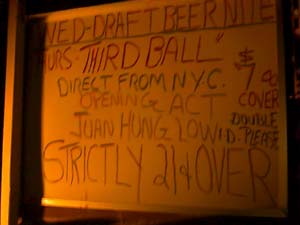 WED-DRAFT BEER NITE
URS-"THIRD BALL"
DIRECT FROM N.Y.C.
OPENING ACT
JUAN HUNG LOW
$7.00
COVER
DOUBLE
I.D. PLEASE
STRICTLY 21 & OVER